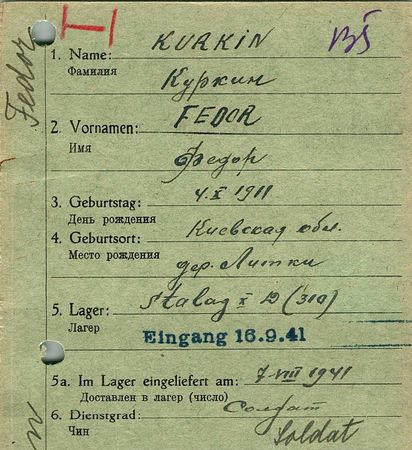 Fedor
KURKIN
1. Name:
Фамилия
Куркин
2. Vornamen: FEDOR
Имя
Федор
3. Geburtstag: 4.X 1911
День рождения
Киевская обл.
4. Geburtsort:
Место рождения
дер. Литки
5. Lager: Stalag X D (310)
Лагер
Eingang 16.9.41
5a. Im Lager eingeliefert am: 7-VIII 1941
Доставлен в лагер (число)
6. Dienstgrad: Солдат
Чин
Soldat